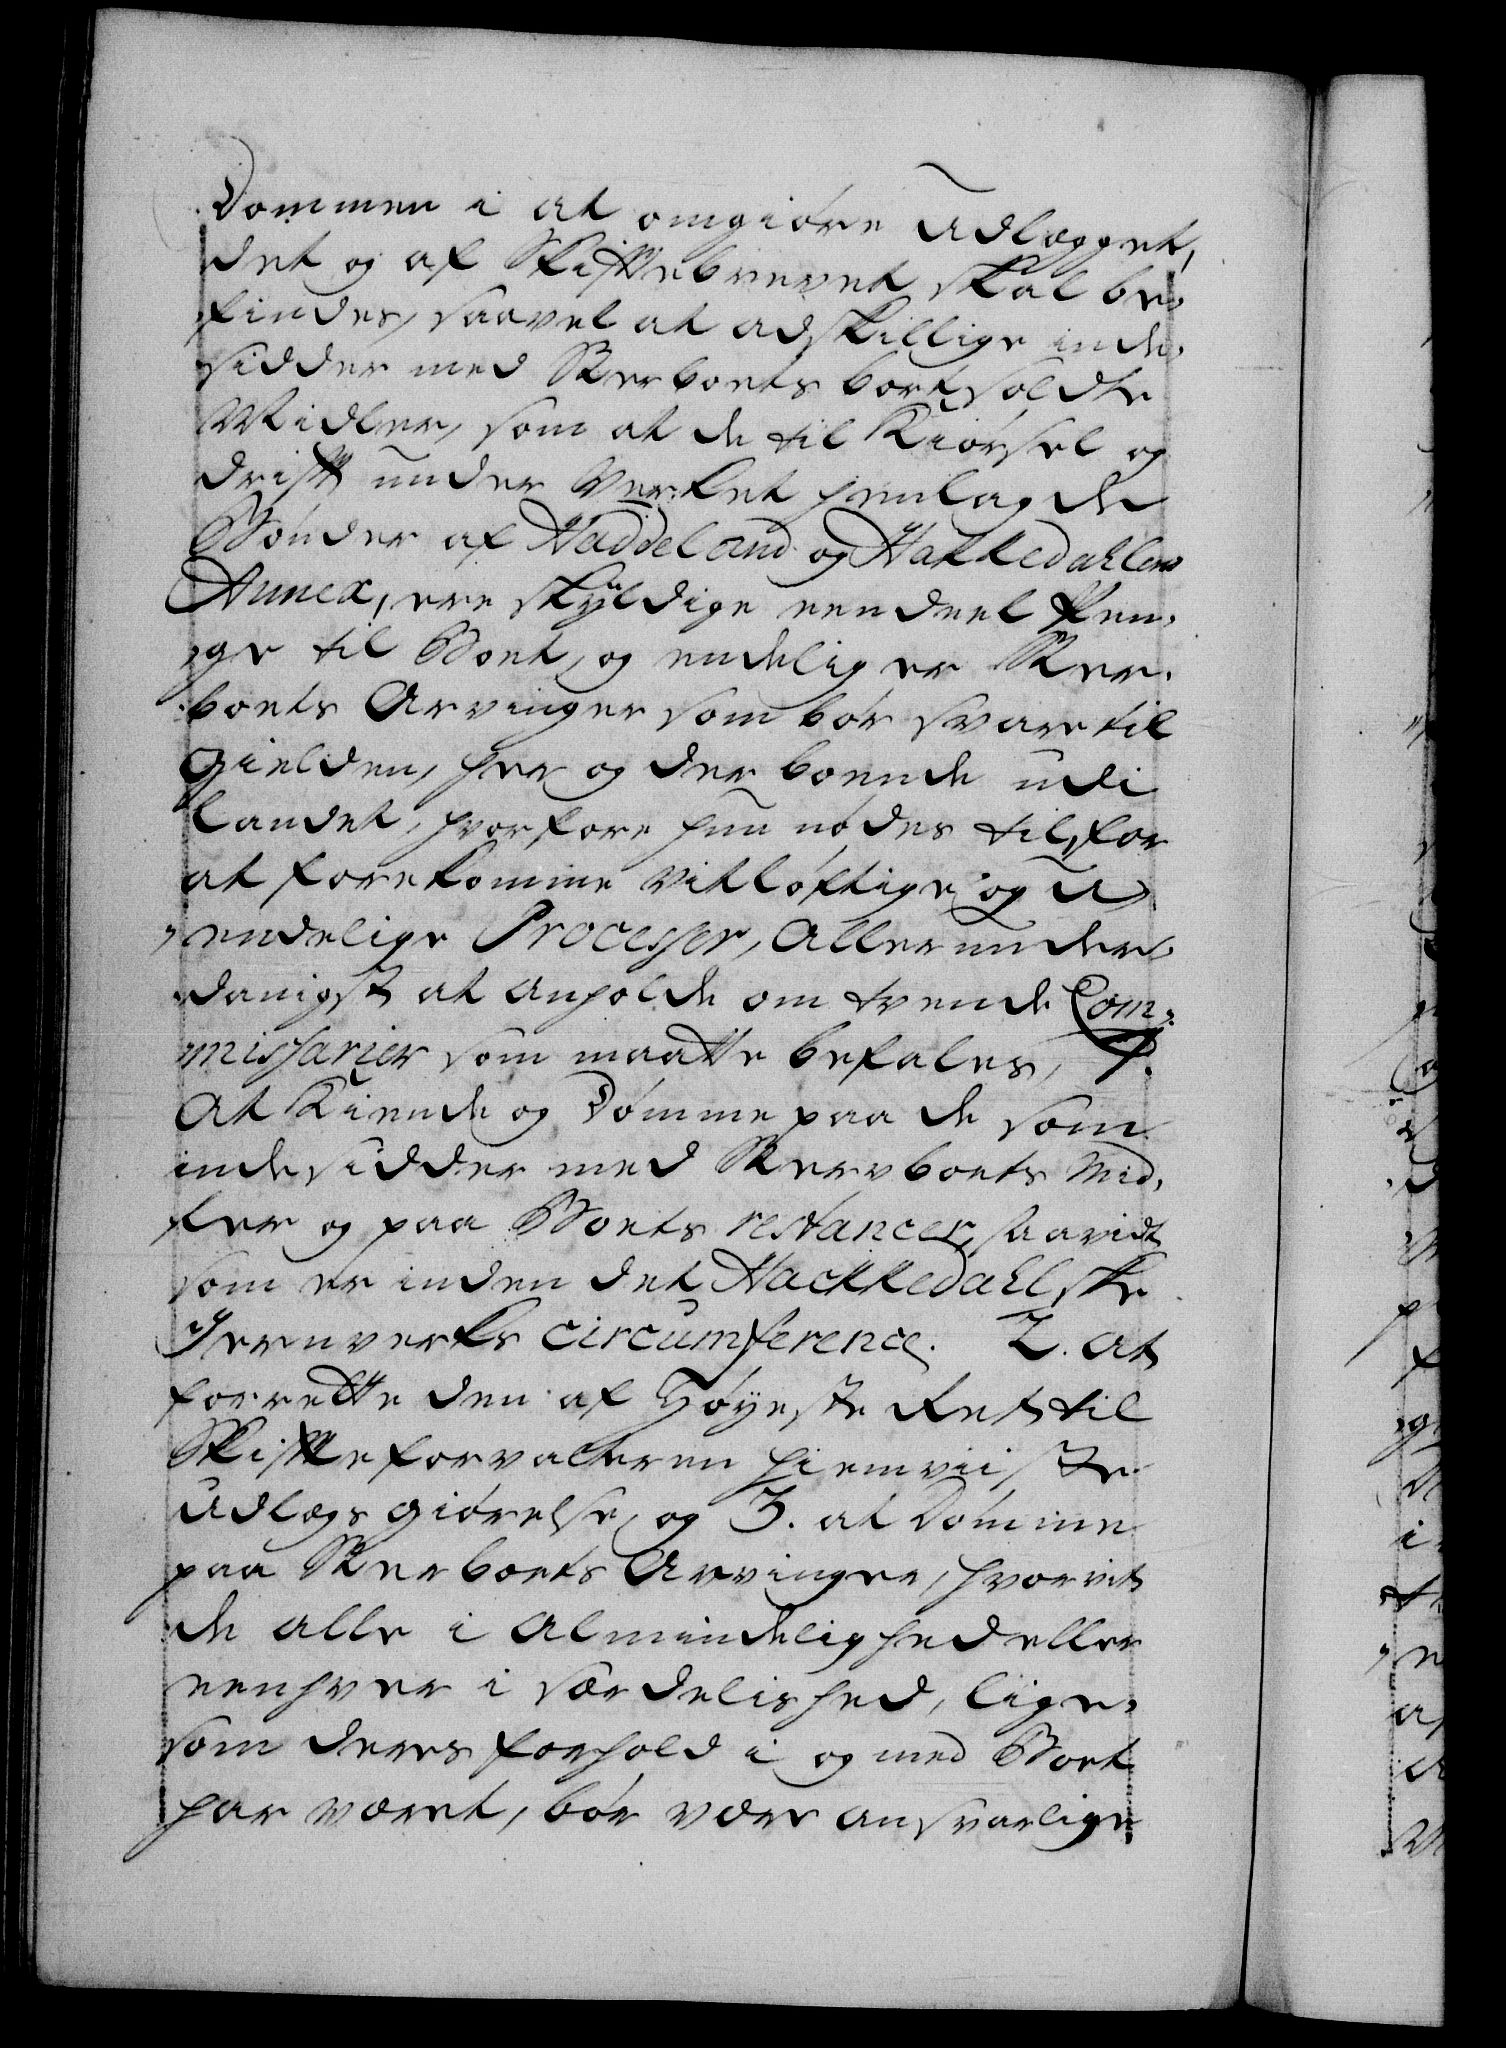 Dommen i at omgiøre Udlægget,
det og af Skiftebrevet skal be-
findes, saavel at adskillige inde-
sidder med Sterboets bortsoldte
Midler, som at de til Kiørsel og
drift under Verket henlagde
Bønder af Haddeland og Hakkedahlens
Annex, ere skyldige eendeel Pen-
ge til Boet, og endelig er Ster-
boets Arvinger som bør svare til
Gielden, her og der boende udi
Landet, hvorfore hun nødes til, for
at forekomme vitløftige og U-
endelige Processer, Allerunder-
danigst at anholde om tvende Com-
missarier som maatte befales, 1.
At Kiende og Dømme paa de som
indesidder med Stervboets Mid-
ler og paa Boets restancer, saavidt
som er inden det Hackkedahlske
Jernverks circumference. 2. at
forrette den af Høyeste Ret til
Skifteforvalteren hiemviiste
Udlægs giørelse, og 3. at Dømme
paa Sterboets Arvinger, hvorvit
de alle i Almindelighed eller
eenhver i særdelished, lige-
som deres forhold i og med Boet
har været, bør være ansvarlige